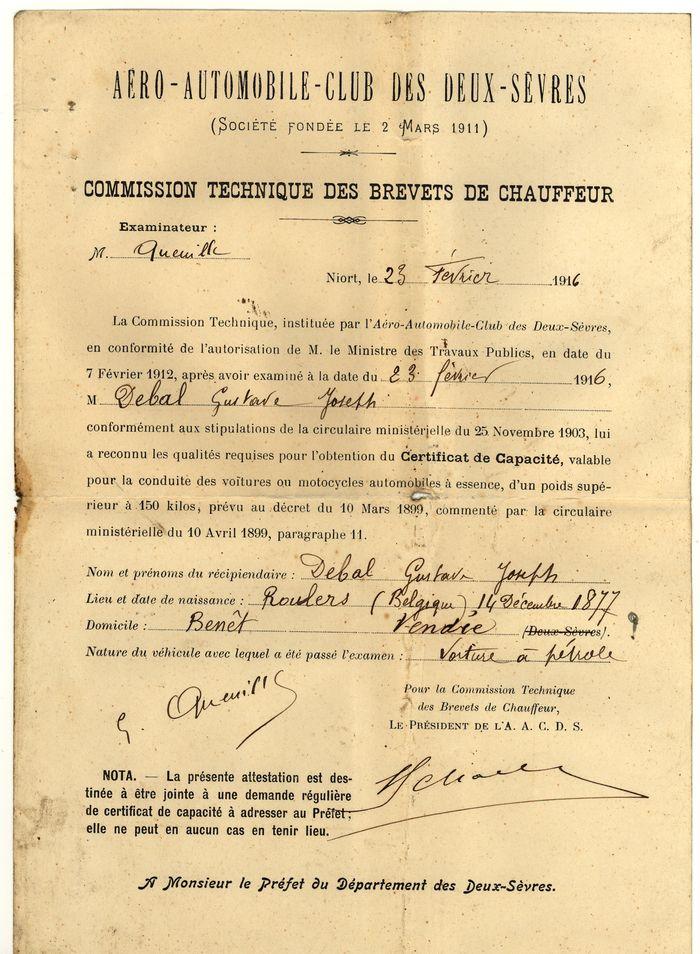 AÉRO-AUTOMOBILE-CLUB DES DEUX-SÈVRES
(SOCIÉTÉ FONDÉE LE 2 MARS 1911)
COMMISSION TECHNIQUE DES BREVETS DE CHAUFFEUR
Examinateur :
M. Queuille
Niort, le 23 Février 1916
La Commission Technique, instituée par l'Aéro-Automobile-Club des Deux-Sèvres,
en conformité de l'autorisation de M. le Ministre des Travaux Publics, en date du
7 Février 1912, après avoir examiné à la date du 23 février 1916,
M Debal Gustave Joseph
conformément aux stipulations de la circulaire ministérielle du 25 Novembre 1903, lui
a reconnu les qualités requises pour l'obtention du Certificat de Capacité, valable
pour la conduite des voitures ou motocycles automobiles à essence, d'un poids supé-
rieur à 150 kilos, prévu au décret du 10 Mars 1899, commenté par la circulaire
ministérielle du 10 Avril 1899, paragraphe 11.
Nom et prénoms du récipiendaire : Debal Gustave Joseph
Lieu et date de naissance : Roulers (Belgique) 14 Décembre 1877
Domicile : Benêt Vendée (Deux-Sèvres). ?
Nature du véhicule avec lequel a été passé l'examen : Voiture à pétrole
Pour la Commission Technique
des Brevets de Chauffeur,
LE PRÉSIDENT DE L'A. A. C. D. S.
G. Queuille
NOTA. — La présente attestation est des-
tinée à être jointe à une demande régulière
de certificat de capacité à adresser au Préfet;
elle ne peut en aucun cas en tenir lieu.
A Monsieur le Préfet du Département des Deux-Sèvres.